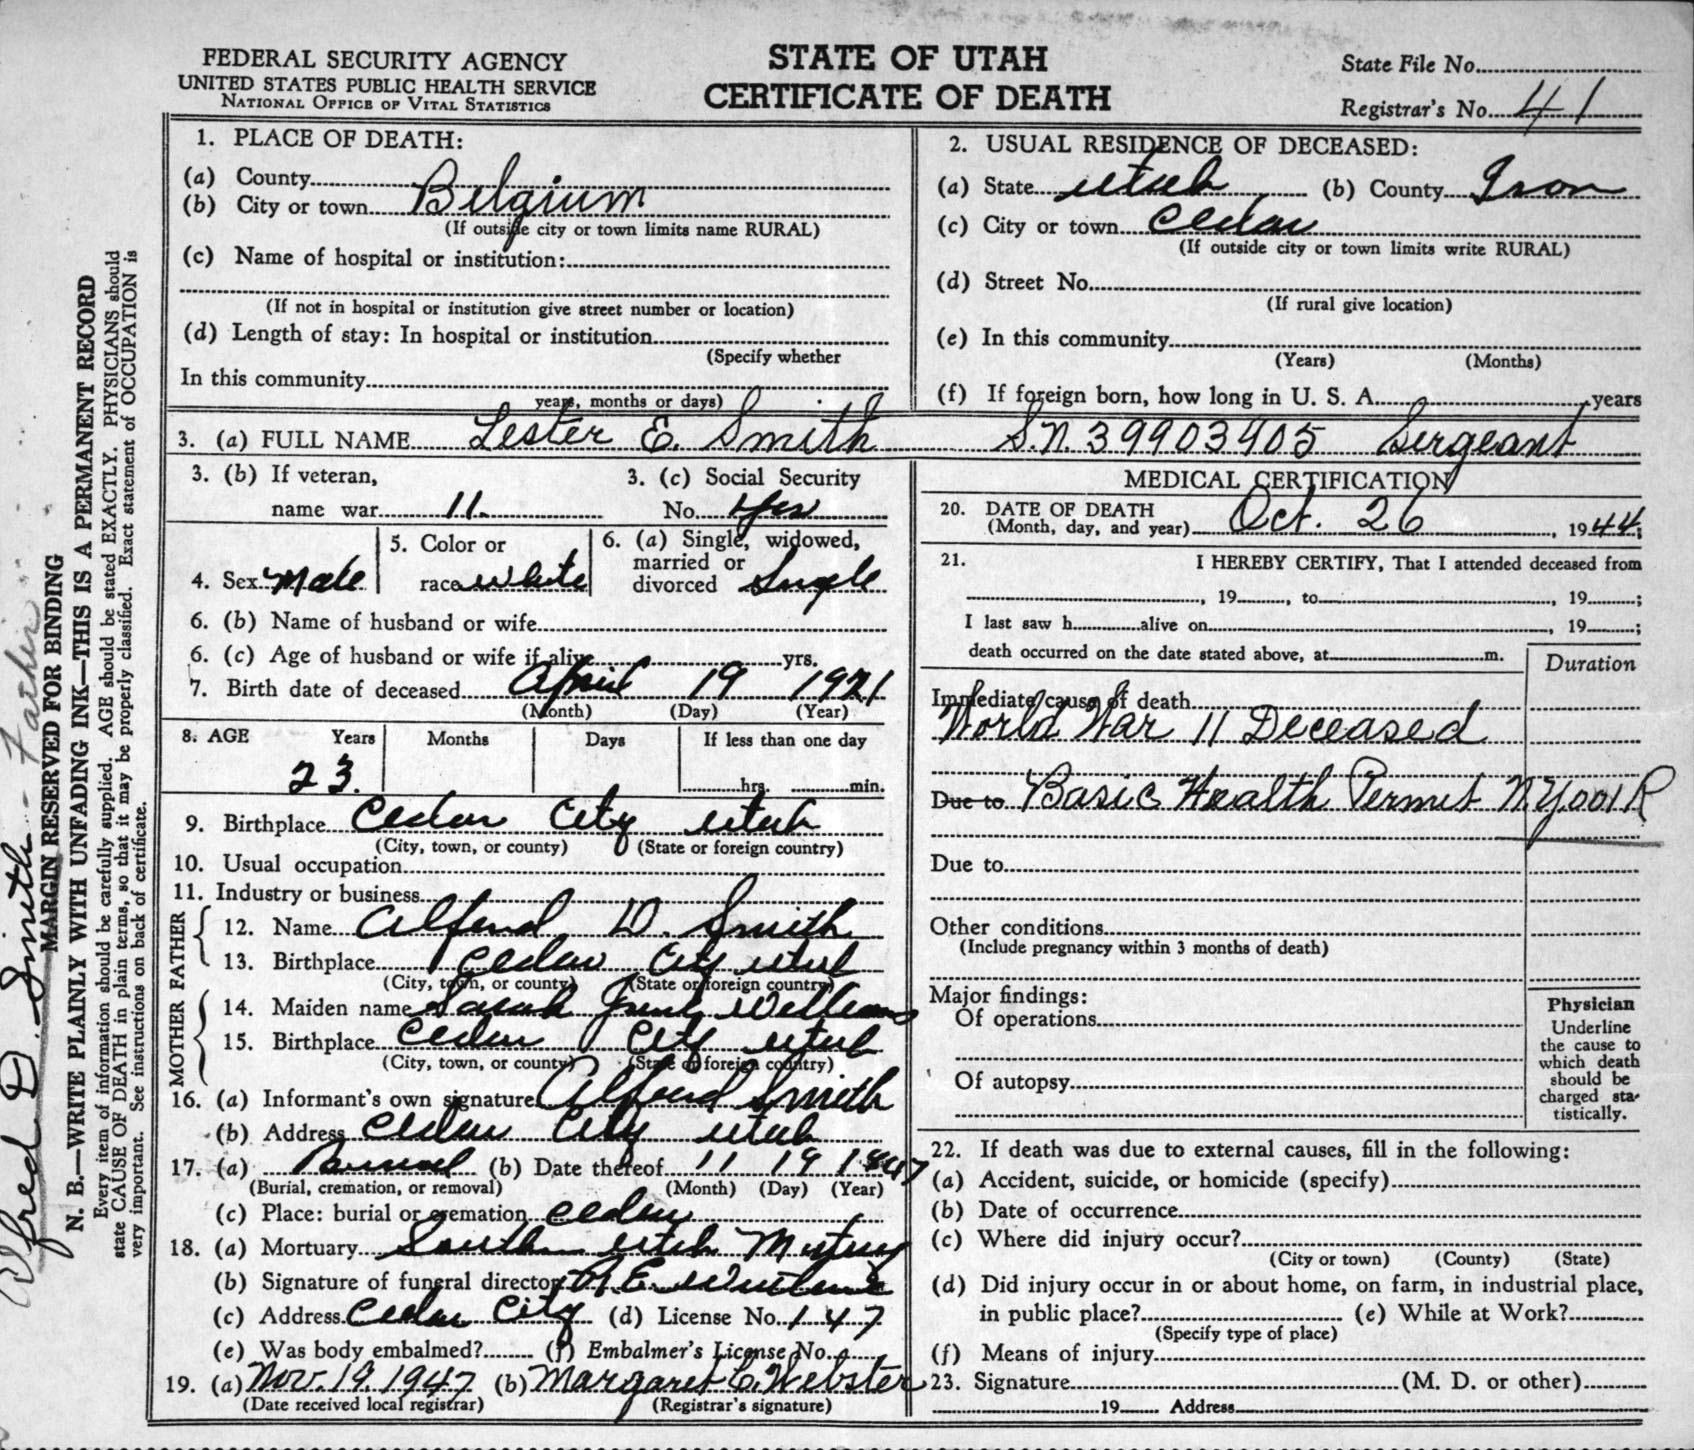 FEDERAL SECURITY AGENCY
UNITED STATES PUBLIC HEALTH SERVICE
NATIONAL OFFICE OF VITAL STATISTICS
STATE OF UTAH
CERTIFICATE OF DEATH
State File No.
Registrar's No. 41
1. PLACE OF DEATH:
(a) County
(b) City or town Belgium
(If outside city or town limits name RURAL)
(c) Name of hospital or institution:
(If not in hospital or institution give street number or location)
(d) Length of stay: In hospital or institution
(Specify whether
In this community
years, months or days)
2. USUAL RESIDENCE OF DECEASED:
(a) State Utah (b) County Iron
(c) City or town Cedar
(If outside city or town limits write RURAL)
(d) Street No.
(If rural give location)
(e) In this community
(Years) (Months)
(f) If foreign born, how long in U. S. A. years
3. (a) FULL NAME Lester E. Smith S.N. 39903905 Sergeant
3. (b) If veteran,
name war 11.
3. (c) Social Security
No. Yes
4. Sex Male
5. Color or
race White
6. (a) Single, widowed,
married or
divorced Single
6. (b) Name of husband or wife
6. (c) Age of husband or wife if alive yrs.
7. Birth date of deceased April 19 1921
(Month) (Day) (Year)
8. AGE Years Months Days If less than one day
23. hrs. min.
9. Birthplace Cedar City Utah
(City, town, or county) (State or foreign country)
10. Usual occupation
11. Industry or business
FATHER
12. Name Alfred D. Smith
13. Birthplace Cedar City Utah
(City, town, or county) (State or foreign country)
MOTHER
14. Maiden name Sarah Williams
15. Birthplace Cedar City Utah
(City, town, or county) (State or foreign country)
16. (a) Informant's own signature Alfred Smith
(b) Address Cedar City Utah
17. (a) Burial (b) Date thereof 11 19 1947
(Burial, cremation, or removal) (Month) (Day) (Year)
(c) Place: burial or cremation Cedar
18. (a) Mortuary Southern Utah Mortuary
(b) Signature of funeral director
(c) Address Cedar City (d) License No. 147
(e) Was body embalmed? (f) Embalmer's License No.
19. (a) Nov. 19. 1947 (b) Margaret C. Webster
(Date received local registrar) (Registrar's signature)
MEDICAL CERTIFICATION
20. DATE OF DEATH
(Month, day, and year) Oct. 26, 1944;
21. I HEREBY CERTIFY, That I attended deceased from
, 19, to, 19;
I last saw h alive on, 19;
death occurred on the date stated above, at m.
Duration
Immediate cause of death
World War 11 Deceased
Due to Basic Health Permit NY001R
Due to
Other conditions
(Include pregnancy within 3 months of death)
Major findings:
Of operations
Of autopsy
Physician
Underline
the cause to
which death
should be
charged sta-
tistically.
22. If death was due to external causes, fill in the following:
(a) Accident, suicide, or homicide (specify)
(b) Date of occurrence
(c) Where did injury occur?
(City or town) (County) (State)
(d) Did injury occur in or about home, on farm, in industrial place,
in public place? (e) While at Work?
(Specify type of place)
(f) Means of injury
23. Signature (M. D. or other)
19 Address
Alfred D. Smith - Father
MARGIN RESERVED FOR BINDING
N. B.—WRITE PLAINLY WITH UNFADING INK—THIS IS A PERMANENT RECORD
Every item of information should be carefully supplied. AGE should be stated EXACTLY. PHYSICIANS should
state CAUSE OF DEATH in plain terms, so that it may be properly classified. Exact statement of OCCUPATION is
very important. See instructions on back of certificate.